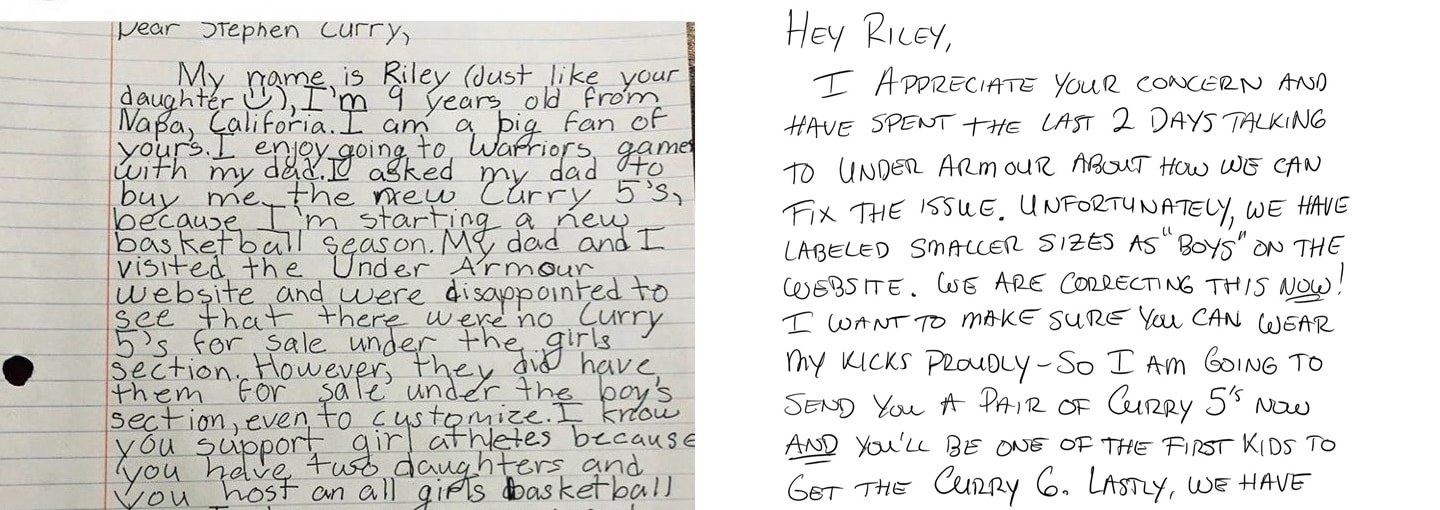 Dear Stephen Curry,
My name is Riley (Just like your
daughter), I'm 9 years old from
Napa, Califoria. I am a big fan of
yours. I enjoy going to Warriors game
with my dad. I asked my dad to
buy me the new Curry 5's,
because I'm starting a new
basketball season. My dad and I
visited the Under Armour
website and were disappointed to
see that there were no Curry
5's for sale under the girls
section. However, they did have
them for sale under the boy's
section, even to customize. I know
you support girl athletes because
you have two daughters and
you host an all girls basketball
HEY RILEY,
I APPRECIATE YOUR CONCERN AND
HAVE SPENT THE LAST 2 DAYS TALKING
TO UNDER ARMOUR ABOUT HOW WE CAN
FIX THE ISSUE. UNFORTUNATELY, WE HAVE
LABELED SMALLER SIZES AS "BOYS" ON THE
WEBSITE. WE ARE CORRECTING THIS NOW!
I WANT TO MAKE SURE YOU CAN WEAR
MY KICKS PROUDLY - SO I AM GOING TO
SEND YOU A PAIR OF CURRY 5's NOW
AND YOU'LL BE ONE OF THE FIRST KIDS TO
GET THE CURRY 6. LASTLY, WE HAVE